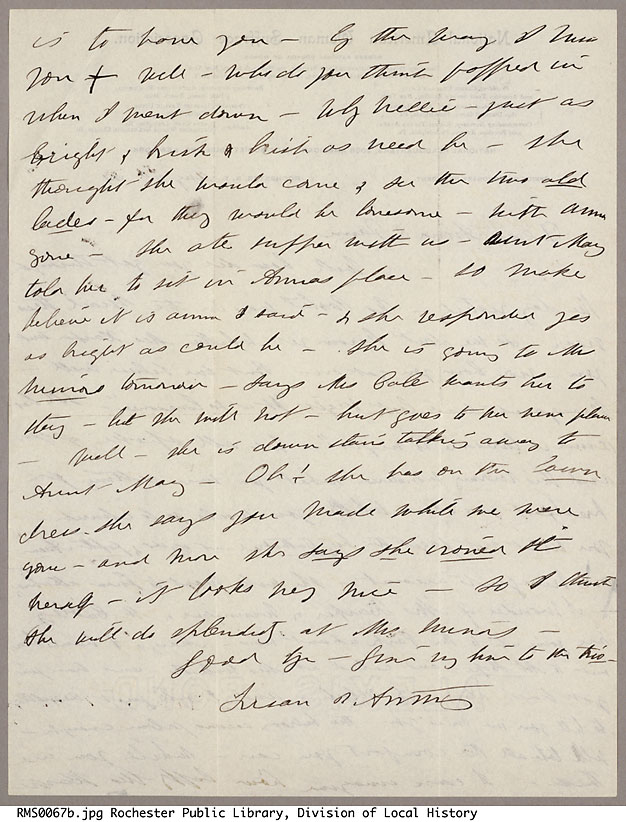 is to have you - By the way I miss
you & well - who do you think popped in
when I went down - Why Nellie - just as
bright & brisk & brisk as need be - she
thought she would come & see the two old
ladies - for they would be lonesome - with Anna
gone - She ate supper with us - Aunt Mary
told her to sit in Annas place - so make
believe it is Anna I said - & she responded yes
as bright as could be - She is going to Mrs
Minors tomorrow - says Mrs Cole wants her to
stay - but she will not - but goes to her new place
- well - she is down stairs talking away to
Aunt Mary - Oh! she has on the lawn
dress she says you made while we were
gone - and more she says she ironed it
herself - it looks very nice - so I think
she will do splendidly at Mrs Minors -
Good bye - give my love to the trio -
Susan B Anthony
RMS0067b.jpg Rochester Public Library, Division of Local History